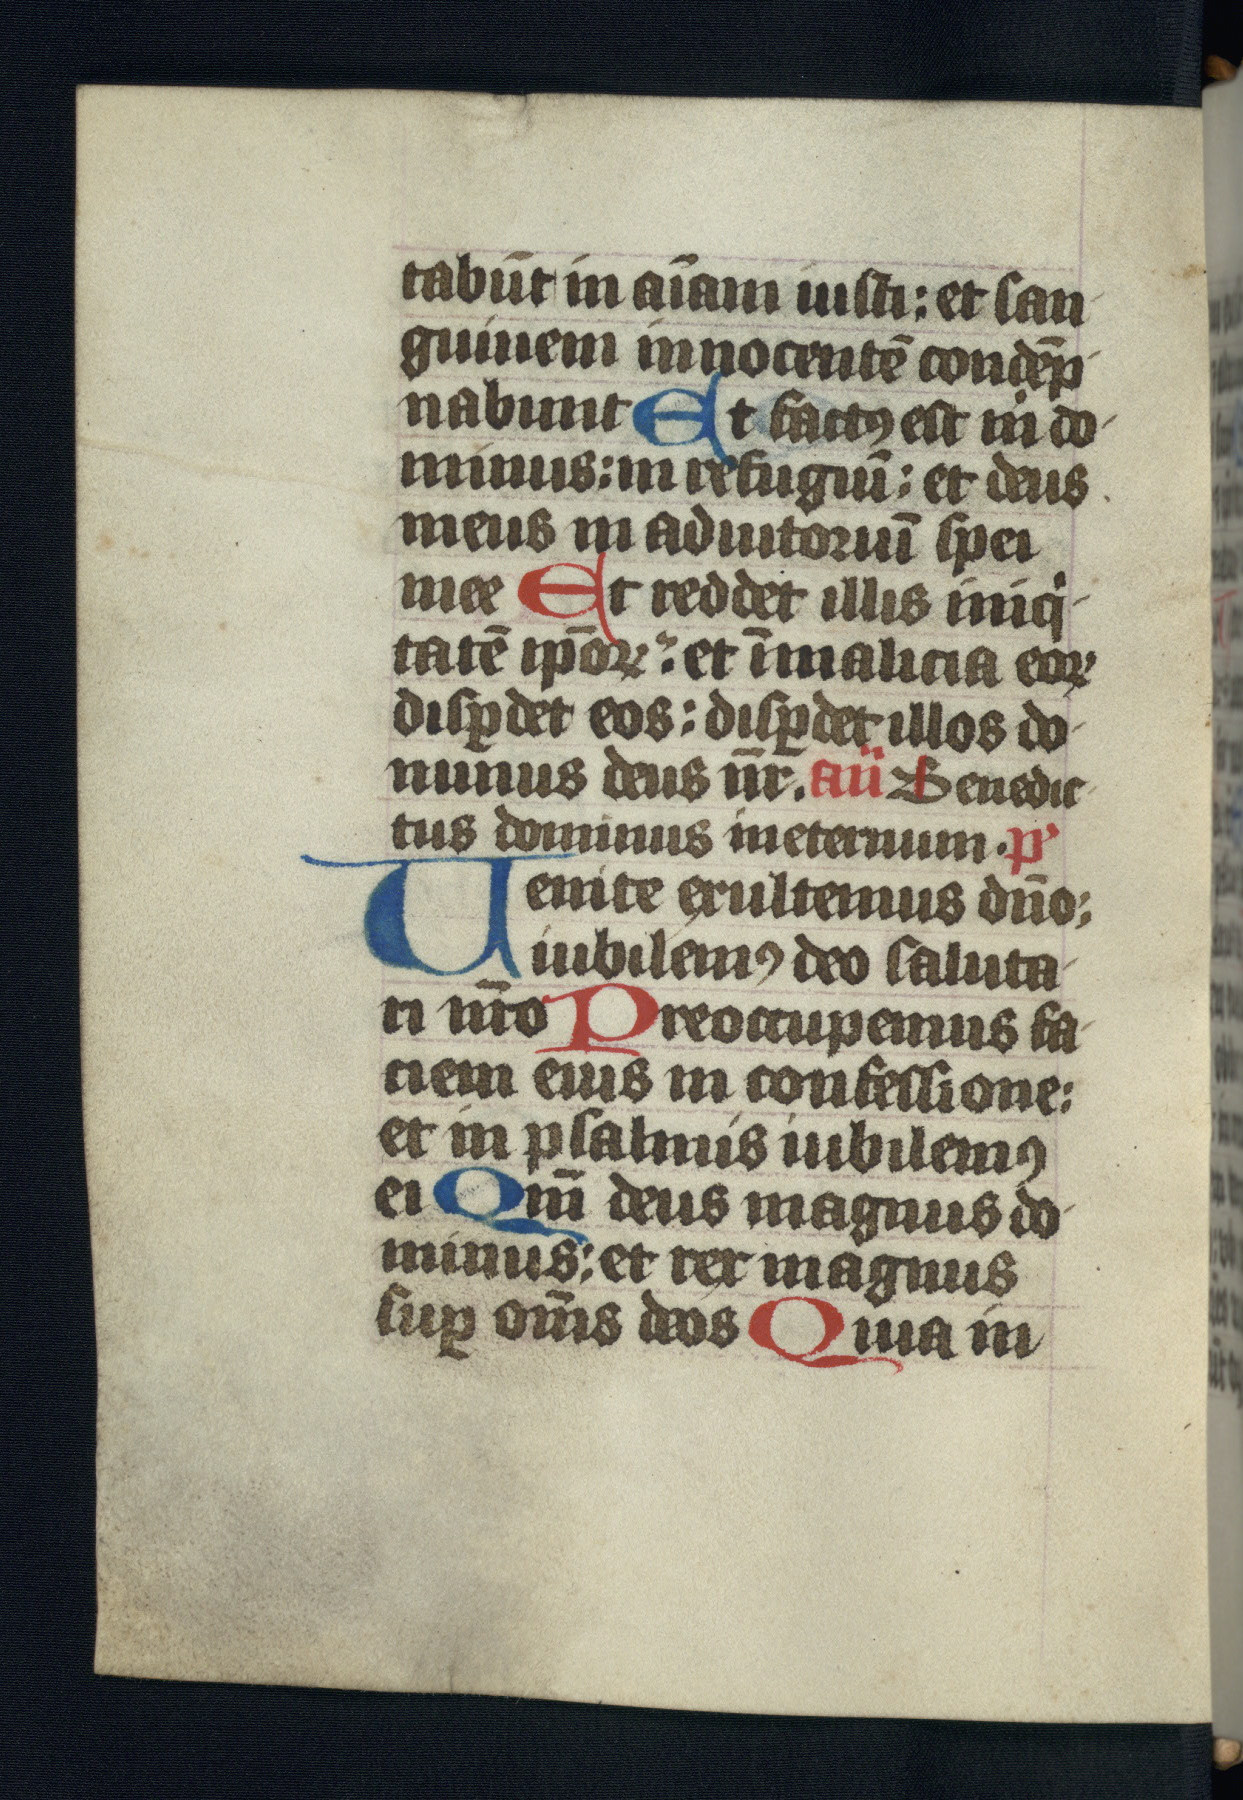 tabūt in aīam iusti : et san
guinem innocentē condēp
nabunt Et factꝯ est m̍ do
minus : in refugiū : et deus
meus in adiutoriuī spei
mee Et reddet illis iniqͥ
tatē ip̄oꝝ : et ī malicia eoꝝ
disꝑdet eos : disꝑdet illos do
minus deus nr̄. an̄ Benedic
tus dominus ineternum . p̕
Uenite exultemus dn̄o :
iubilemꝯ deo saluta
ri nr̄o Preoccupemus fa
ciem eius in confessione :
et in psalmis iubilemꝯ
ei Qm̄ deus magnus do
minus : et rex magnus
suꝑ om̄s deos Quia in